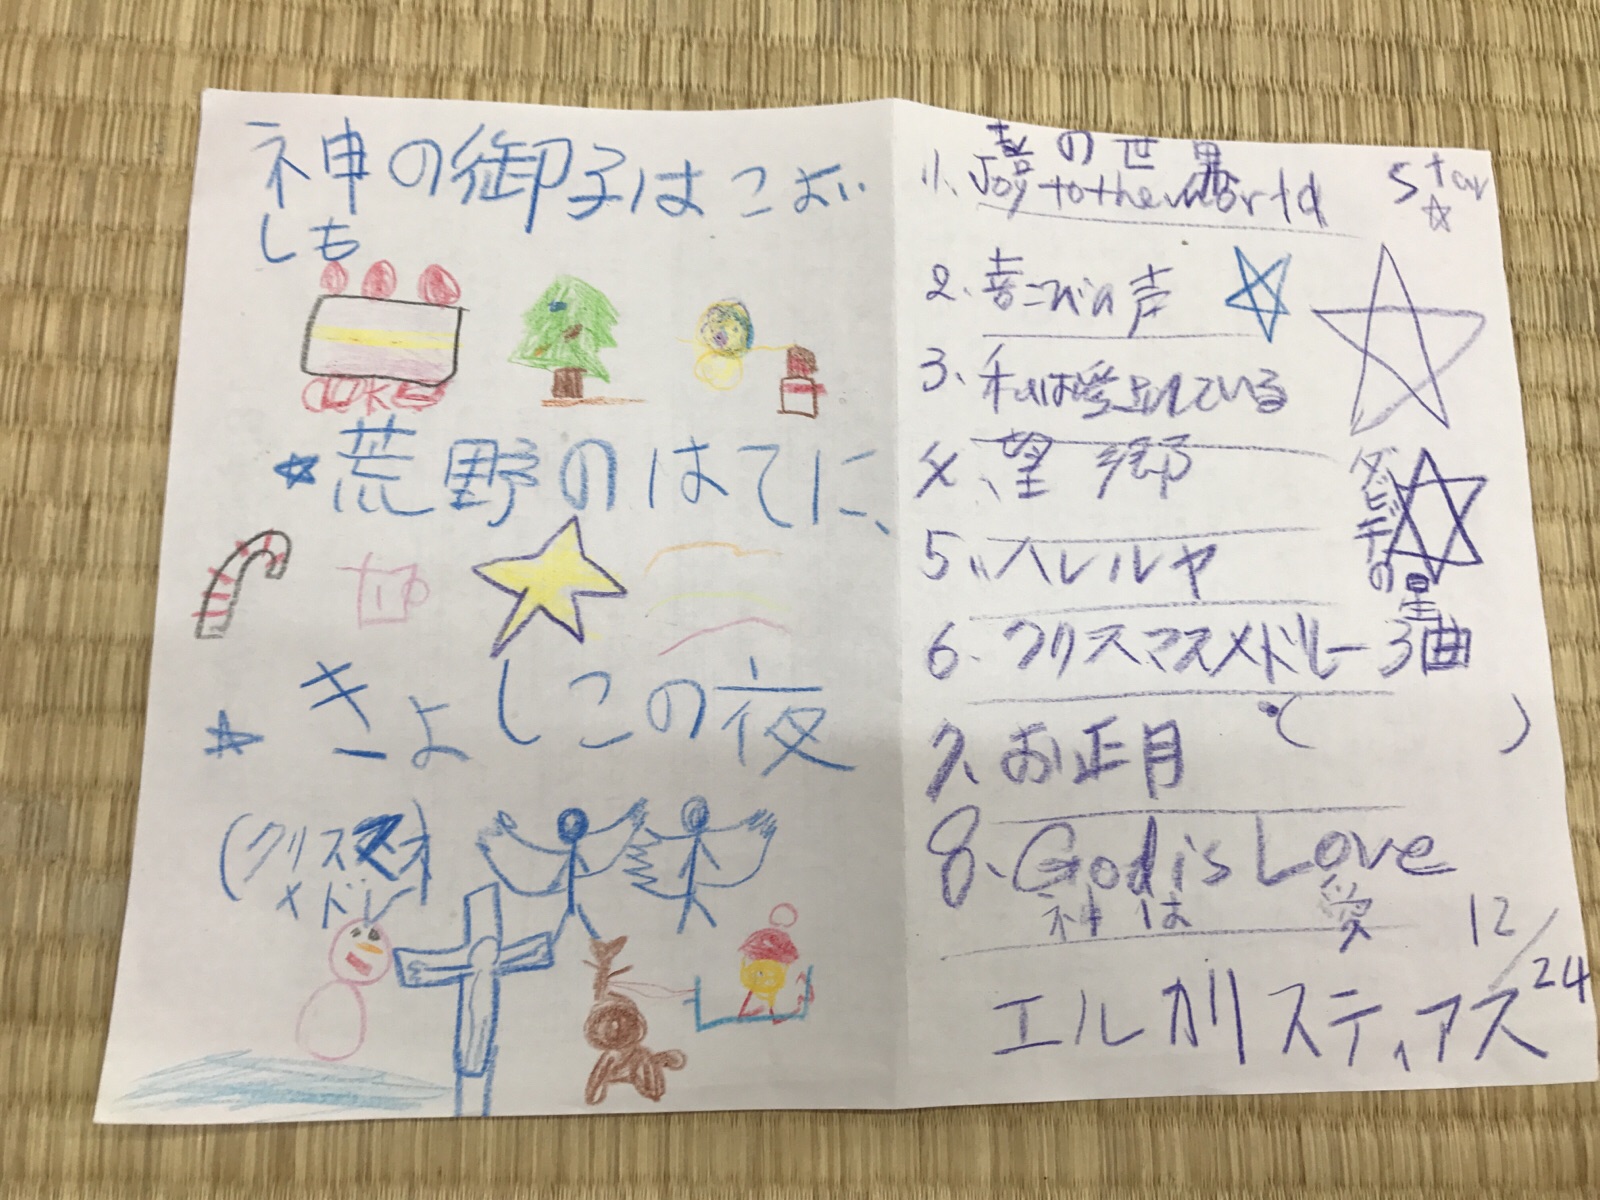 神の御子はこよい
しも
cake
荒野のはてに、
きよしこの夜
(クリスマス
メドレー)
喜の世界
1、Joy to the world
Star
2、喜こびの声
3、私は愛されている
4、望郷
ダビデの星
5、ハレルヤ
6、クリスマスメドレー3曲
( )
7、お正月
8、God is Love
神は 愛
12/24
エルカリスティアス